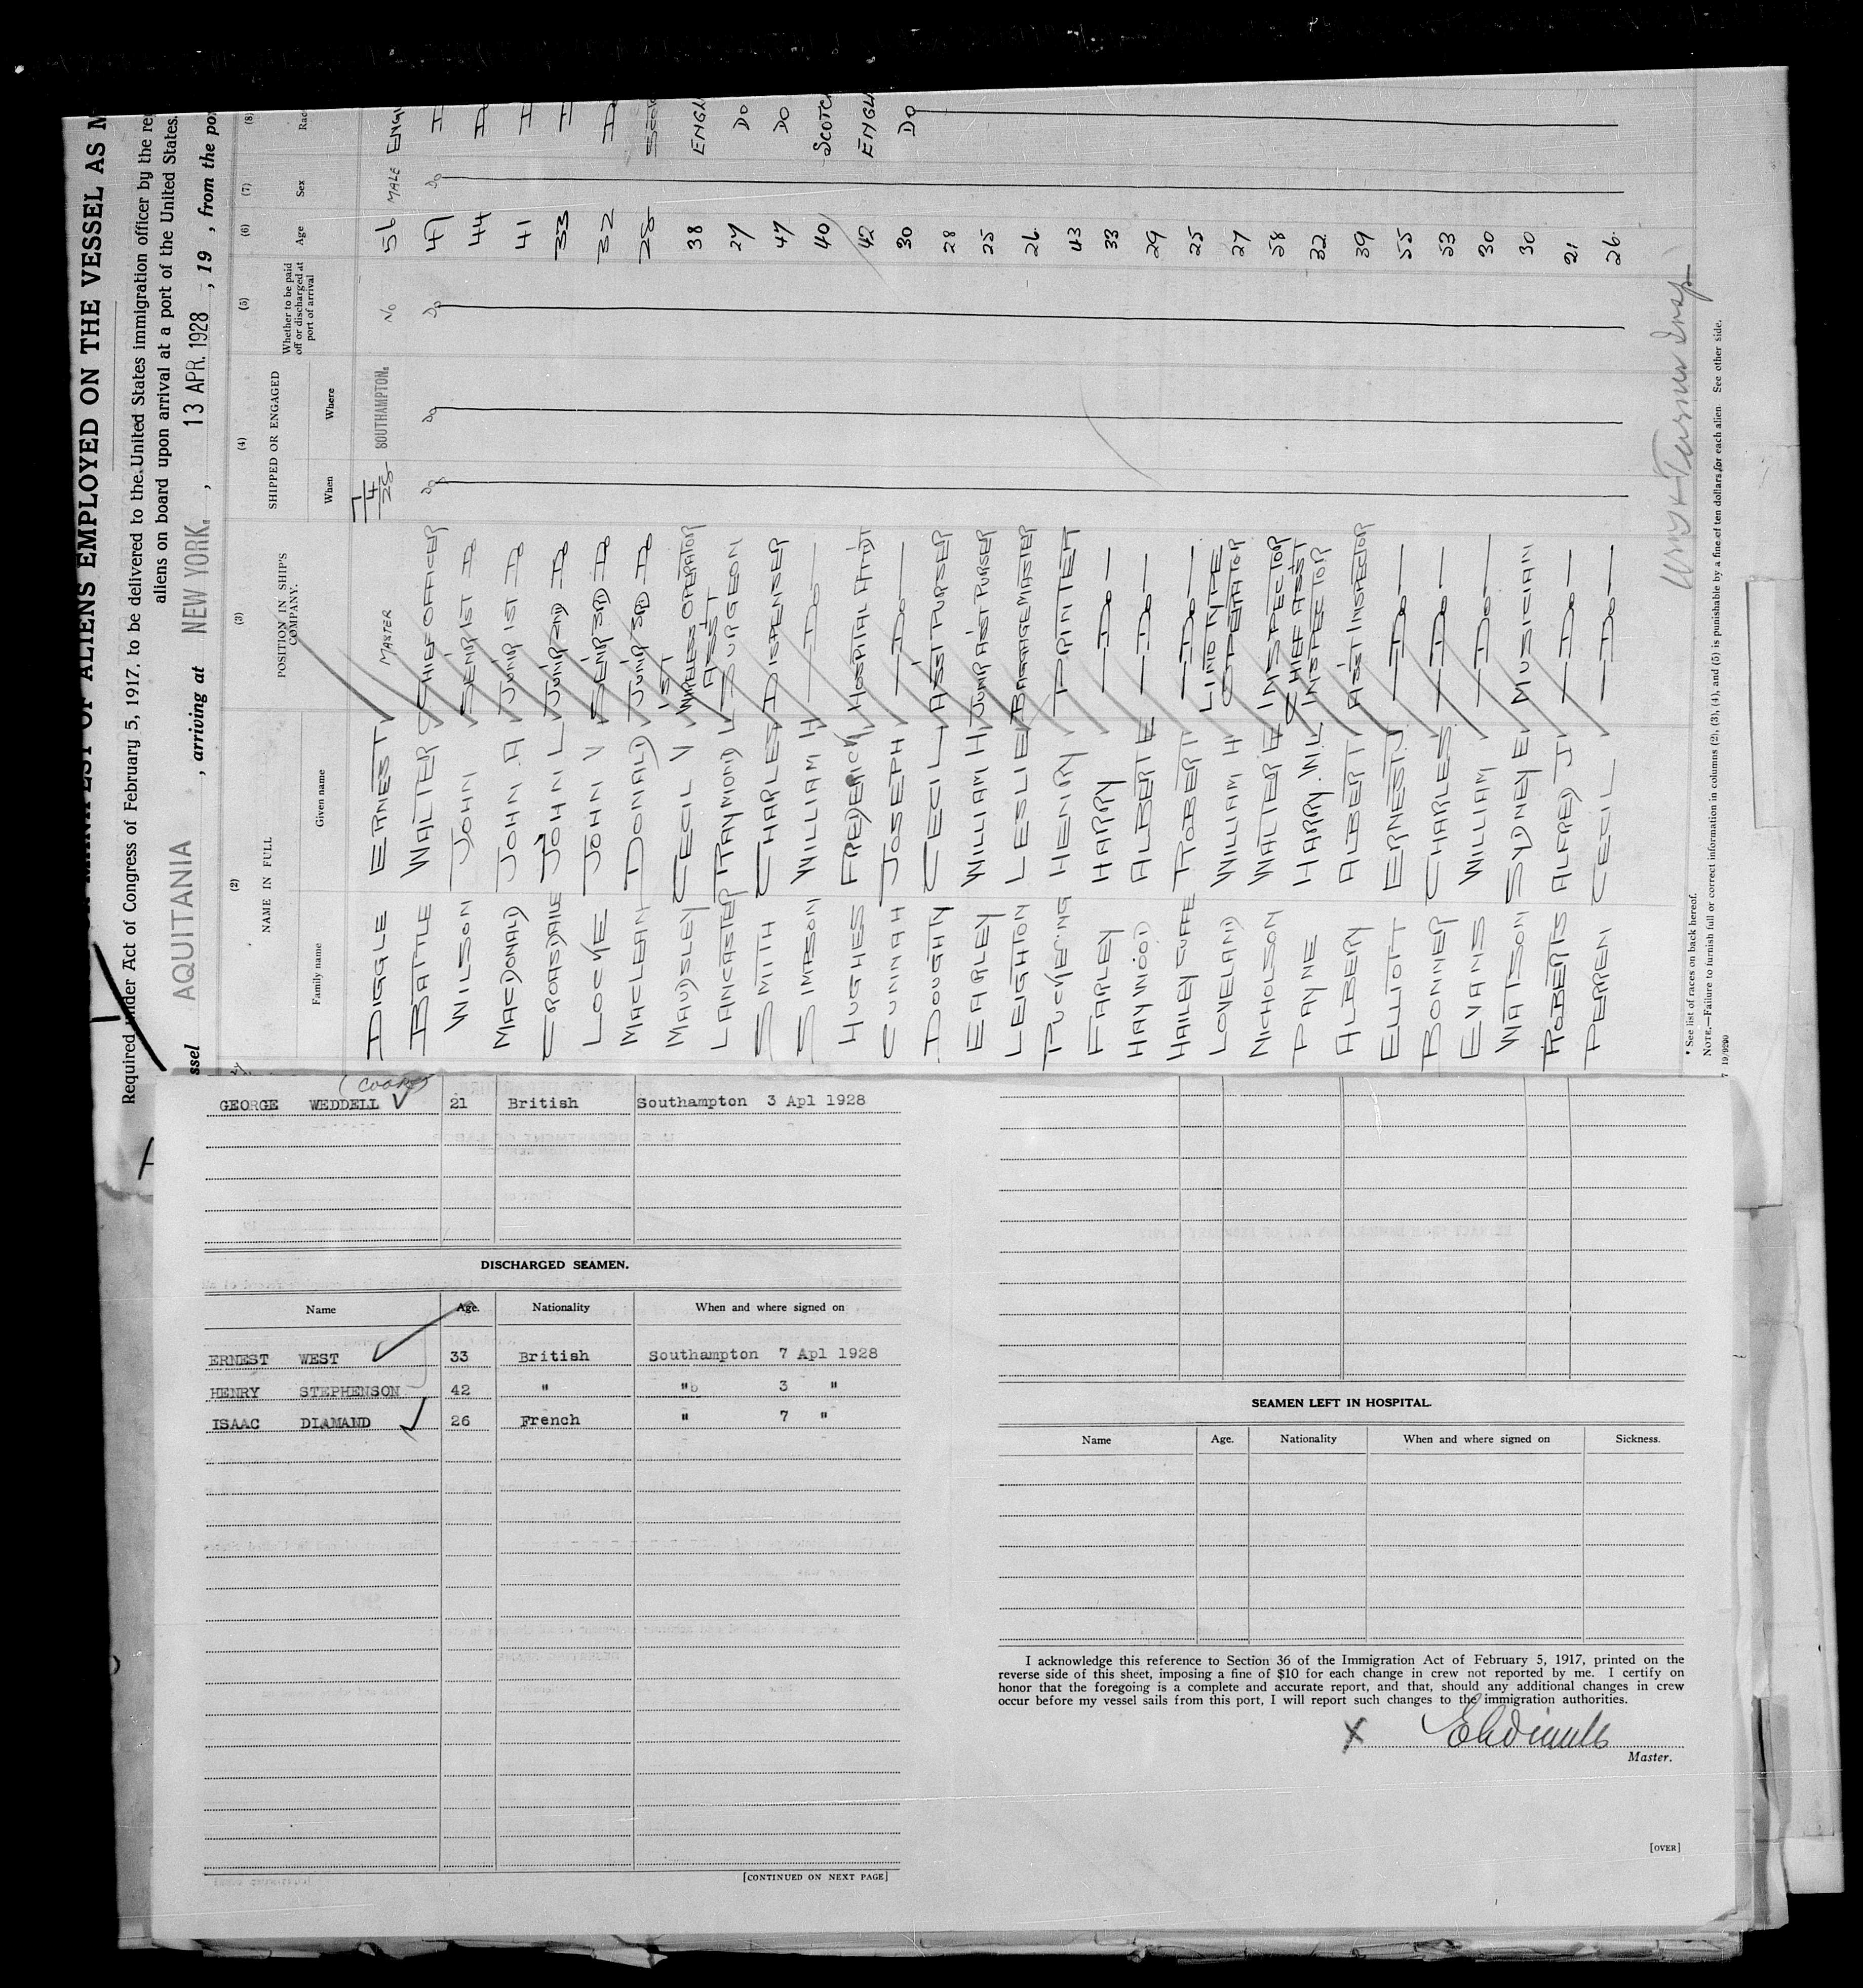 MANIFEST OF ALIENS EMPLOYED ON THE VESSEL AS M
Required under Act of Congress of February 5, 1917, to be delivered to the United States immigration officer by the re
aliens on board upon arrival at a port of the United States.
ssel AQUITANIA , arriving at NEW YORK. , 13 APR. 1928 , 19 , from the po
(2) (3) (4) (5) (6) (7) (8)
NAME IN FULL POSITION IN SHIP'S COMPANY. SHIPPED OR ENGAGED Whether to be paid off or discharged at port of arrival Age Sex Rac
Family name Given name When Where
DIGGLE ERNEST MASTER 7/4/28 SOUTHAMPTON. NO 56 MALE ENGL
BATTLE WALTER CHIEF OFFICER DO DO DO 47 DO D
WILSON JOHN SENIR 1ST DO 44 D
MACDONALD JOHN A JUNIR 1ST DO 41 D
CROASDAILE JOHN L JUNIR 2ND DO 33 D
LOCKE JOHN V SENIR 3RD DO 32 D
MACLEAN DONALD JUNIR 3RD DO 28 SCOTC
MAUDSLEY CECIL V 1ST WIRELESS OPERATOR 38 ENGL
LANCASTER RAYMOND L ASST SURGEON 27 DO
SMITH CHARLES DISPENSER 47 DO
SIMPSON WILLIAM H DO 40 SCOTC
HUGHES FREDERICK HOSPITAL ATTDT 42 ENGLI
CUNNAH JOSEPH DO 30 DO
DOUGHTY CECIL ASST PURSER 28
EARLEY WILLIAM H JUNR ASST PURSER 25
LEIGHTON LESLIE BAGGAGE MASTER 26
PUCKERING HENRY PRINTER 43
FARLEY HARRY DO 33
HAYWOOD ALBERT E DO 29
HAILEY CUFFE ROBERT DO 25
LOVELAND WILLIAM H LINOTYPE OPERATOR 27
NICHOLSON WALTER E INSPECTOR 58
PAYNE HARRY. W. L. CHIEF ASST INSPECTOR 32
ALBERY ALBERT ASST INSPECTOR 39
ELLIOTT ERNEST J DO 55
BONNER CHARLES DO 53
EVANS WILLIAM DO 30
WATSON SYDNEY E MUSICIAN 30
ROBERTS ALFRED J DO 21
PERREN CECIL DO 26
* See list of races on back hereof.
NOTE.—Failure to furnish full or correct information in columns (2), (3), (4), and (5) is punishable by a fine of ten dollars for each alien. See other side.
GEORGE WEDDELL 21 British Southampton 3 Apl 1928
DISCHARGED SEAMEN.
Name Age. Nationality When and where signed on
ERNEST WEST 33 British Southampton 7 Apl 1928
HENRY STEPHENSON 42 " " 3 "
ISAAC DIAMAND 26 French " 7 "
[CONTINUED ON NEXT PAGE]
SEAMEN LEFT IN HOSPITAL.
Name Age. Nationality When and where signed on Sickness.
I acknowledge this reference to Section 36 of the Immigration Act of February 5, 1917, printed on the
reverse side of this sheet, imposing a fine of $10 for each change in crew not reported by me. I certify on
honor that the foregoing is a complete and accurate report, and that, should any additional changes in crew
occur before my vessel sails from this port, I will report such changes to the immigration authorities.
X
Master.
[OVER]